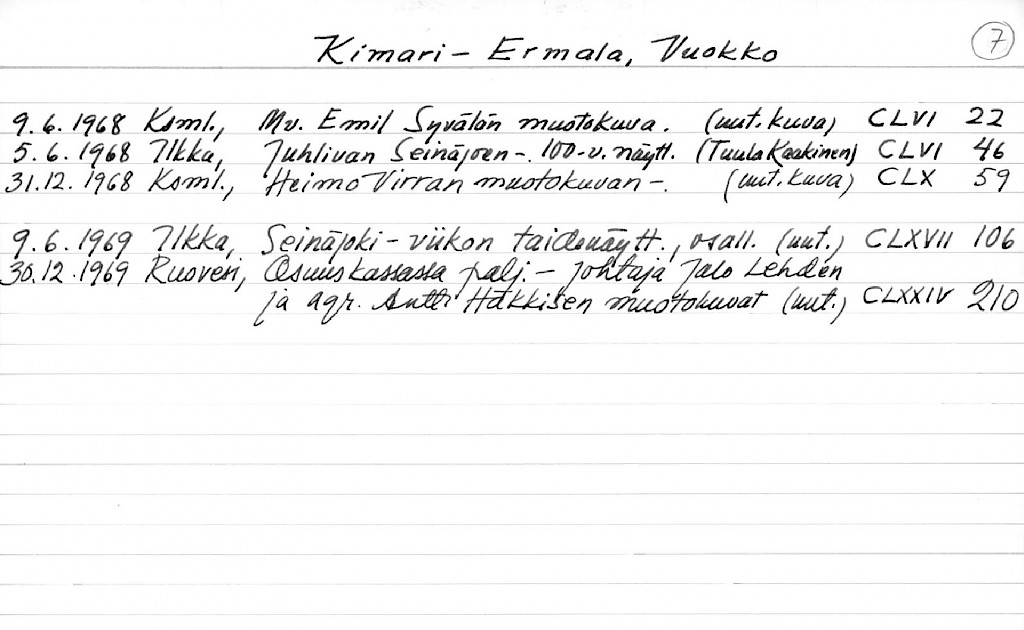 Kimari - Ermala, Vuokko
7
9.6.1968 Ksml., Mv. Emil Syvälän muotokuva. (uut. kuva) CLVI 22
5.6.1968 Ilkka, Juhlivan Seinäjoen -. 100-v. näytt. (Tuula Kaakinen) CLVI 46
31.12.1968 Ksml., Heimo Virran muotokuvan -. (uut. kuva) CLX 59
9.6.1969 Ilkka, Seinäjoki - viikon taidenäytt., osall. (uut.) CLXVII 106
30.12.1969 Ruovesi, Osuuskassassa palj. - johtaja Jalo Lehden
ja agr. Antti Häkkisen muotokuvat (uut.) CLXXIV 210